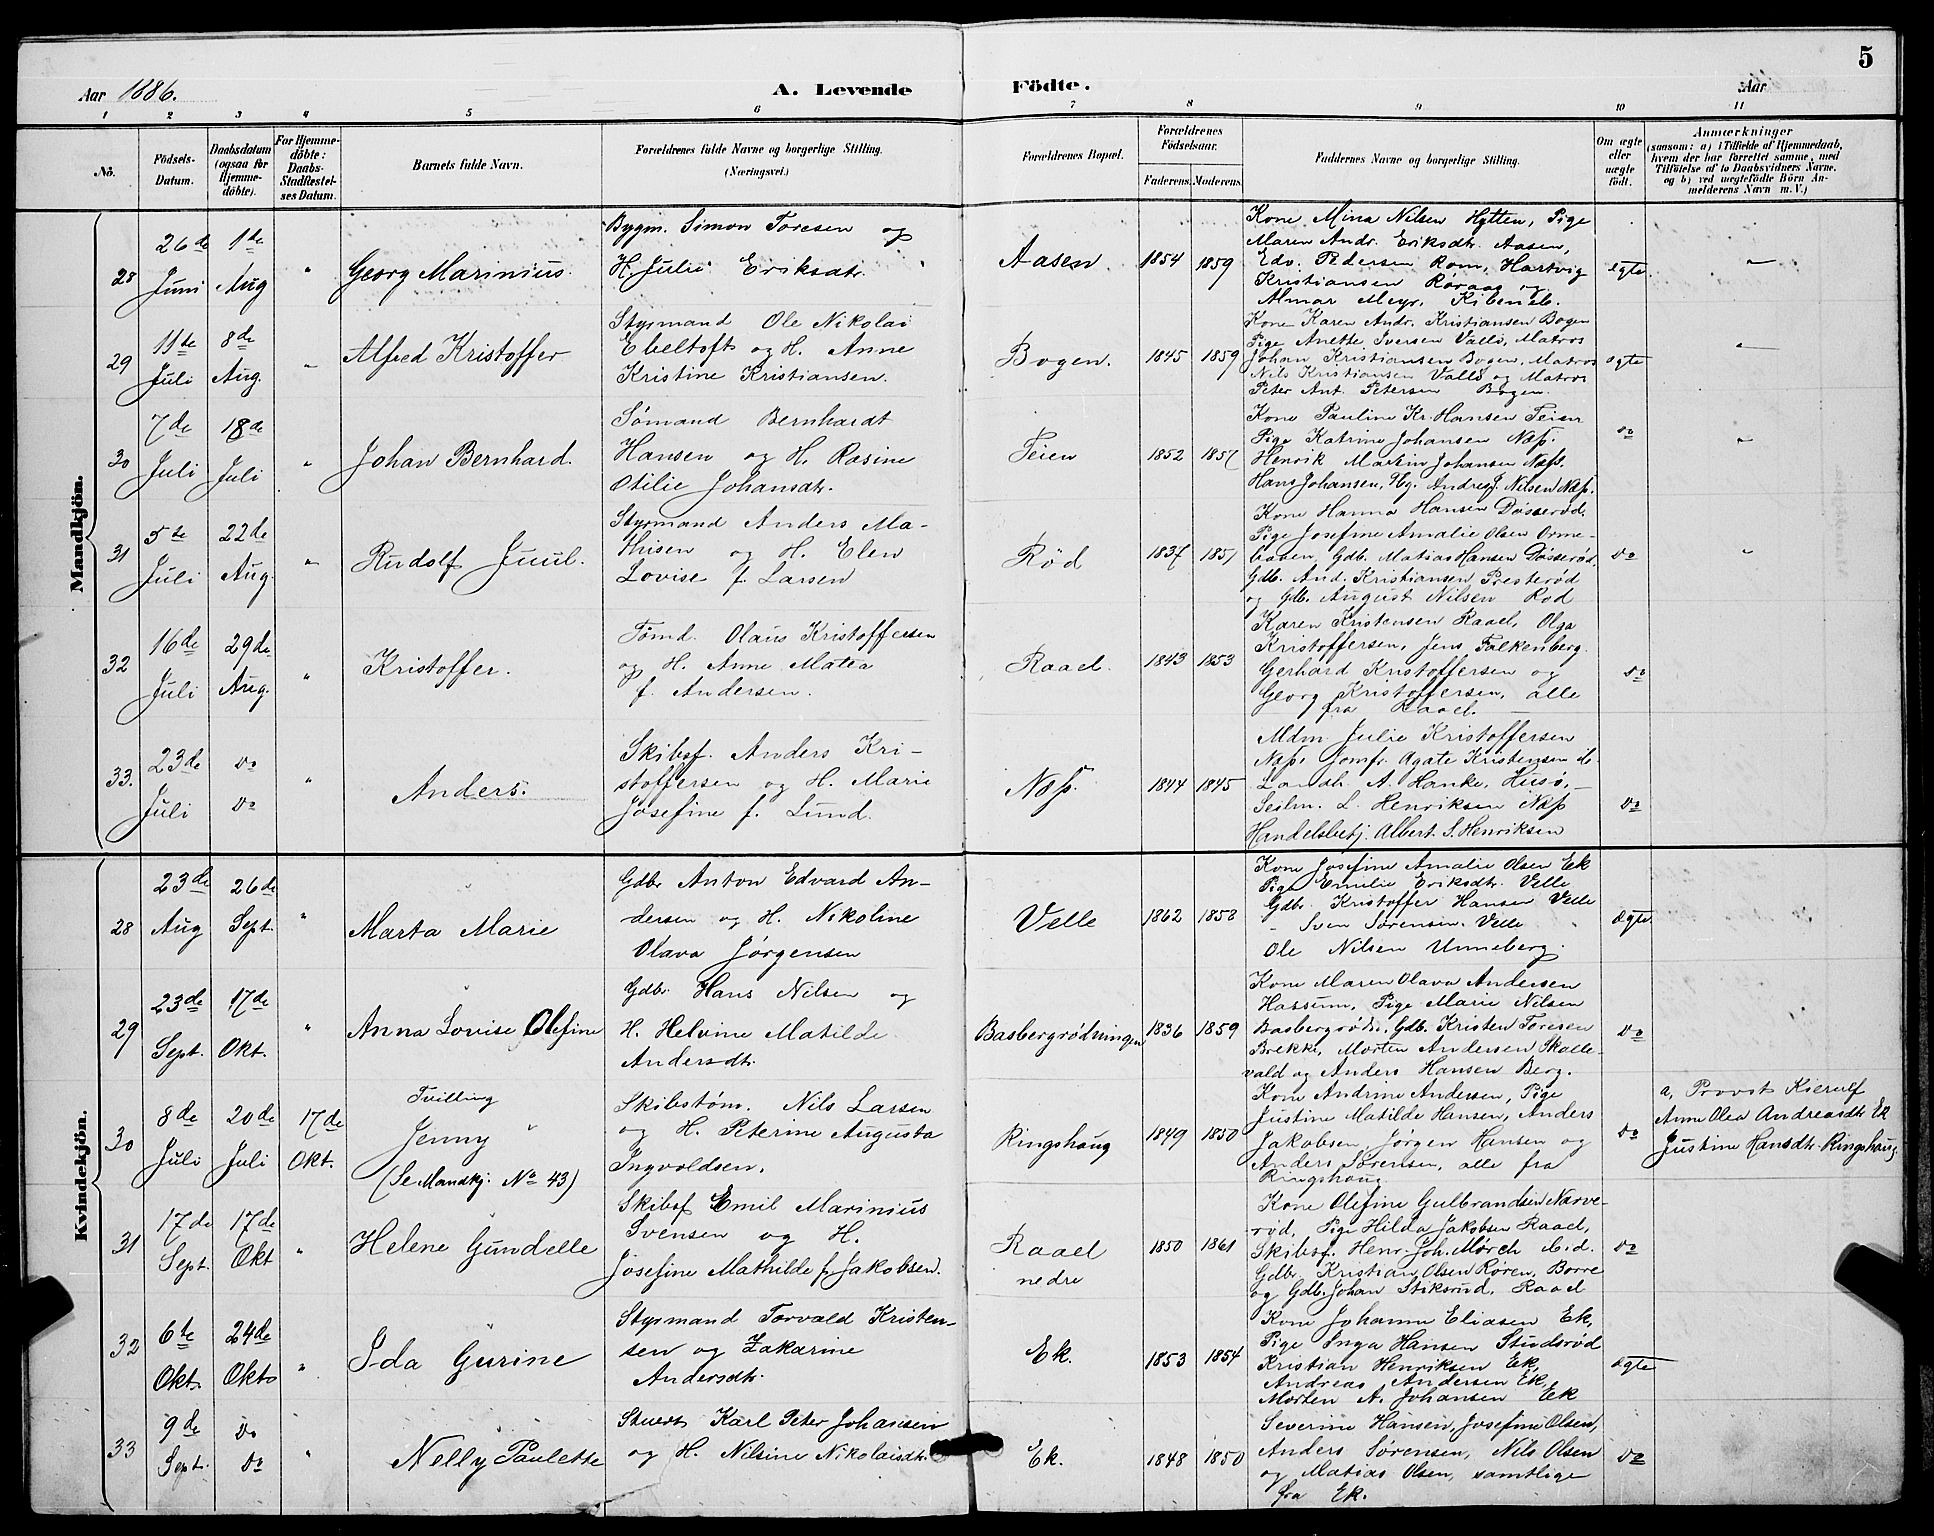 5
Aar 1886.
A. Levende Födte.
Aar
1 2 3 4 5 6 7 8 9 10 11
No.
Födsels-Datum.
Daabsdatum (ogsaa for Hjemme-döbte).
For Hjemme-döbte: Daabs-Stadfæstel-ses Datum.
Barnets fulde Navn.
Forældrenes fulde Navne og borgerlige Stilling. (Næringsvei.)
Forældrenes Bopæl.
Forældrenes Födselsaar.
Faderens. Moderens.
Faddernes Navne og borgerlige Stilling.
Om ægte eller uægte födt.
Anmærkninger
(saasom: a) i Tilfælde af Hjemmedaab,
hvem der har forrettet samme, med
Tilföielse af to Daabsvidners Navne.
og b) ved uægtefödte Börn An-
melderens Navn m. V.)
Mandkjön.
28
26de Juni
1de Aug
"
Georg Marinius.
Bygm. Simon Toresen og
H. Julie Eriksdtr.
Aasen.
1854 1859
Kone Mina Nilsen Hytten, Pige
Maren Andr. Eriksdtr. Aasen,
Edv. Pedersen Rom, Hartvig
Kristiansen Røraas og
Almar Meyr,
ægte.
"
29
11te Juli
8de Aug.
"
Alfred Kristoffer
Stypmand Ole Nikolai
Ebeltoft og H. Anne
Kristine Kristiansen.
Bogen.
1845 1859
Kone Karen Andr. Kristiansen Bogen
Pige Anette Iversen Vallø, Matros
Johan Kristiansen Bogen, Matros
Nils Kristiansen Vallø og Matros
Peter Ant. Petersen Bogen.
ægte
"
30
7de Juli
18de Juli
"
Johan Bernhard.
Sømand Bernhardt
Hansen og H. Rasine
Otilie Johansdtr.
Teien
1852 1857
Kone Pauline Kr. Hansen Teien
Pige Katrine Johansen Næss.
Henrik Martin Johansen Næss.
Hans Johansen, Og. Andreas J. Nilsen Næss.
do
"
31
5te Juli
22de Aug.
"
Rudolf Juul.
Styrmand Anders Ma-
thisen og H. Elen
Lovise f. Larsen
Rød
1837 1851
Kone Hanna Hansen Døsserød.
Pige Josefine Amalie Olsen Orme-
, Gdb. Matias Hansen Døsserød,
Gdb. And. Kristiansen Presterød
og Gdb. August Nilsen Rød
do
"
32
16de Juli
29de Aug.
"
Kristoffer.
Tømd. Olaus Kristoffersen
og H. Anne Matea
f. Andersen.
Raael.
1843 1853
Karen Kristensen Raael, Olga
Kristoffersen, Jens Falkenberg.
Gerhard Kristoffersen og
Georg Kristoffersen, alle
fra Raael.
do
33.
23de Juli
do do
"
Anders.
Skibsf. Anders Kri-
stoffersen og H. Marie
Josefine f. Lund.
Næss.
1844 1845
Mdm Julie Kristoffersen
Næss. Jomfr. Agate Kristensen do.
Landh. A. Hanke, Husø,
Seilm. L. Henriksen Næss
Handelsbetj. Albert S. Henriksen
do
Kvindekjön.
28
23de Aug
26de Sept.
"
Marta Marie
Gdbr Anton Edvard An-
dersen og H. Nikoline
Olava Jørgensen
Velle
1862 1858
Kone Josefine Amalie Olsen Ek
Pige Emilie Eriksdtr. Velle
Gdbr. Kristoffer Hansen Velle
" Sven Sørensen Velle
Ole Nilsen Unneberg.
Ægte
29
23de Sept.
17de Okt.
"
Anna Lovise Olefine
Gdbr. Hans Nilsen og
H. Helvine Matilde
Andersdtr.
Basbergrødningen
1836 1859
Kone Maren Olava Andersen
Hassum, Pige Marie Nilsen
Basbergrødn, Gdb. Kristen Toresen
Brekke, Morten Andersen Skalle-
vald og Anders Hansen Berg.
do
30
8de Juli
20de Juli
17de Okt.
Tvilling
Jenny
(Se Mandkj. No 43)
Skibstøm. Nils Larsen
og H. Peterine Augusta
Ingvoldsen.
Ringshaug
1849 1850
Kone Andrine Andersen, Pige
Justine Matilde Hansen, Anders
Jakobsen, Jørgen Hansen og
Anders Sørensen, alle fra
Ringshaug
do
a, Provst Kierulf
Anne Olea Andreasdtr. Ek
Justine Hansdtr. Ringshaug.
31
17de Sept.
17de Okt
"
Helene Gundelle
Skibsf Emil Marinius
Svensen og H.
Josefine Mathilde f. Jakobsen.
Raael
nedre
1850 1861
Kone Olefine Gulbrandsen Narve-
rød, Pige Hilda Jakobsen Raael,
Skibsf. Henr. Joh. Mørch ibid.
Gdbr. Kristian Olsen Røren, Borre
og Gdb. Johan Stiksrud, Raael
do
32
6te Okt.
24de Okto
"
Ida Gurine
Stypmand Torvald Kristen-
sen og Zakarine
Andersdtr.
Ek.
1853 1854
Kone Johanne Eliasen Ek,
Pige Inga Hansen Studsrød
Kristian Henriksen Ek,
Andreas Andersen Ek,
Morten A. Johansen Ek
ægte
33
9de Sept.
do do
"
Nelly Paulette
Stuert Karl Peter Johansen
og H. Nilsine Nikolaisdtr.
Ek.
1848 1850
Severine Hansen, Josefine Olsen,
Anders Sørensen, Nils Olsen
og Matias Olsen, samtlige
fra Ek.
do